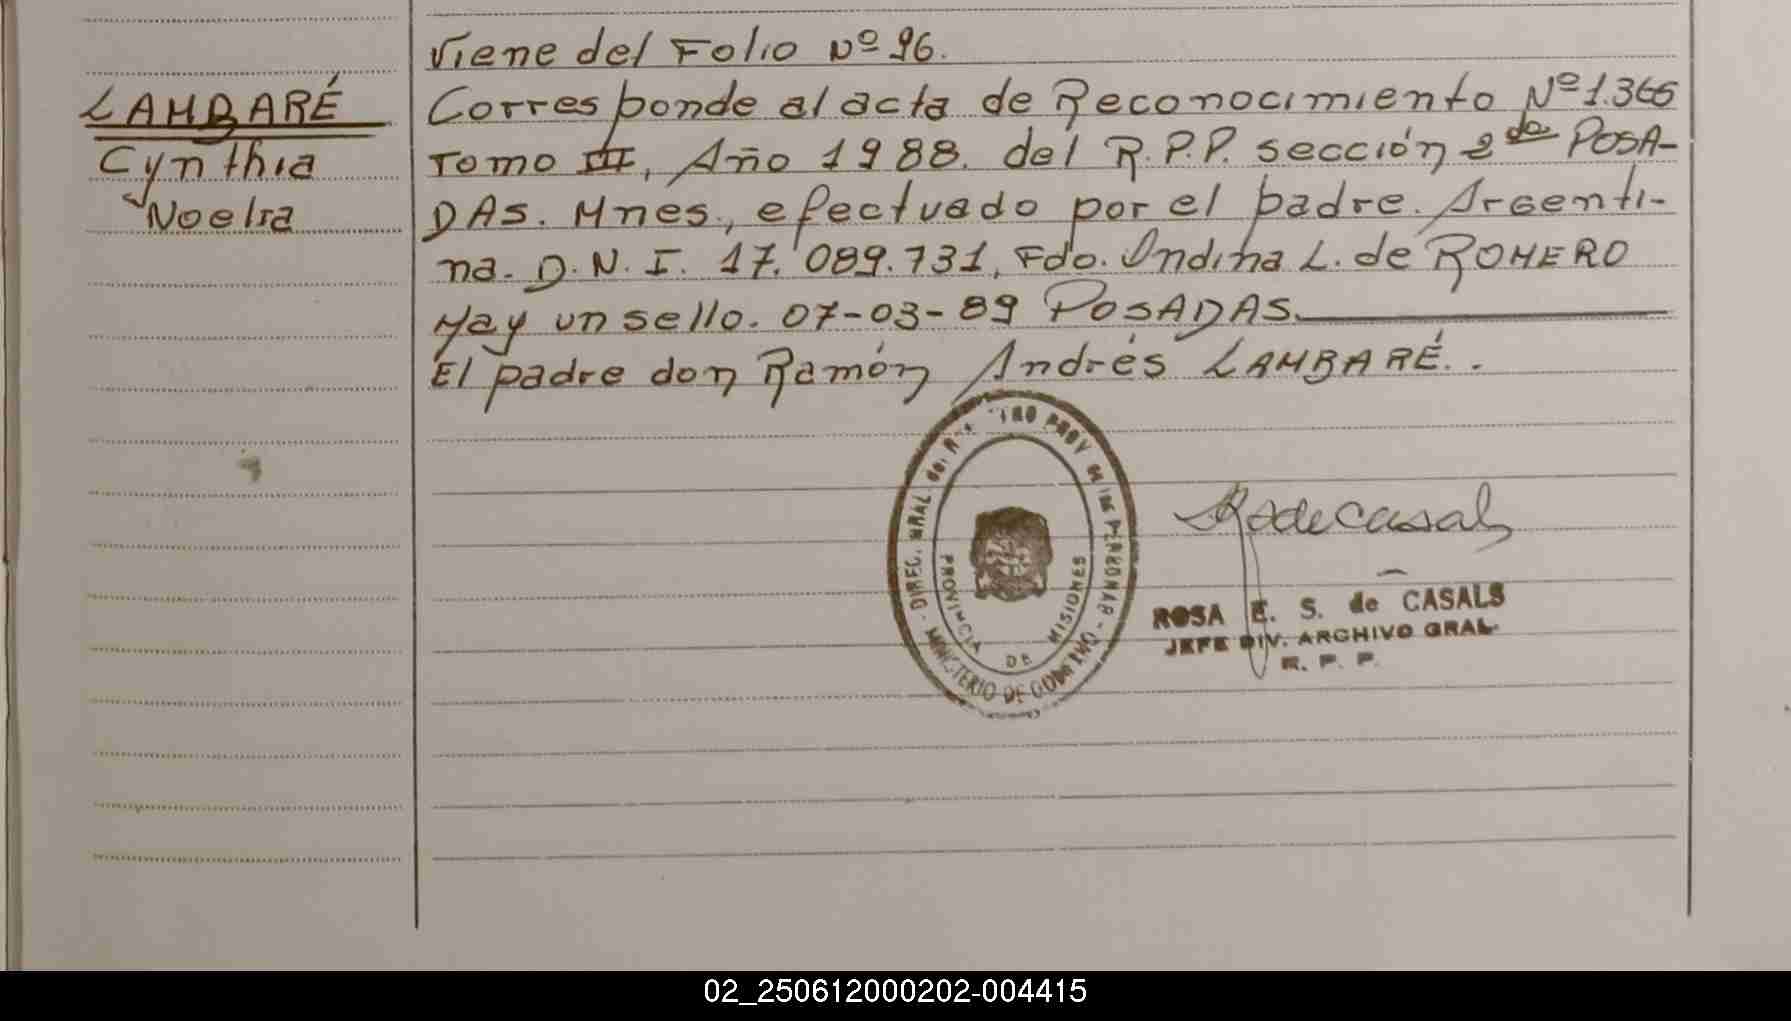 Viene del Folio Nº 96.
LAMBARÉ
Cynthia
Noelia
Corresponde al acta de Reconocimiento Nº 1.366
Tomo III, Año 1988. del R.P.P. sección 2da POSA-
DAS. Mnes., efectuado por el padre. Argenti-
na. D.N.I. 17.089.731, Fdo. Ondina L. de ROMERO
Hay un sello. 07-03-89 POSADAS.
El padre don Ramón Andrés LAMBARÉ.
PROVINCIA DE MISIONES
MINISTERIO DE GOBIERNO
ROSA E. S. de CASALS
JEFE DIV. ARCHIVO GRAL.
R. P. P.
02_250612000202-004415